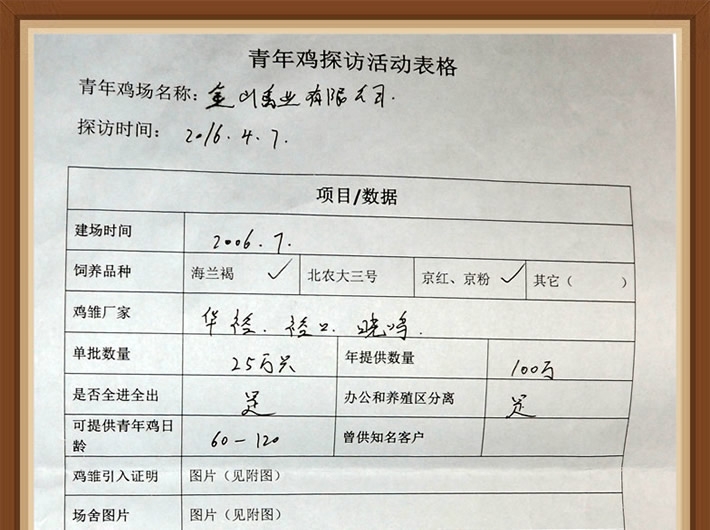 青年鸡探访活动表格
青年鸡场名称：金山禽业有限公司.
探访时间： 2016.4.7.
项目/数据
建场时间 2006.7.
饲养品种 海兰褐 ✓ 北农大三号 京红、京粉 ✓ 其它（ ）
鸡雏厂家 华裕. 裕口. 晓鸣.
单批数量 25万只 年提供数量 100万
是否全进全出 是 办公和养殖区分离 是
可提供青年鸡日
龄 60-120 曾供知名客户
鸡雏引入证明 图片（见附图）
场舍图片 图片（见附图）